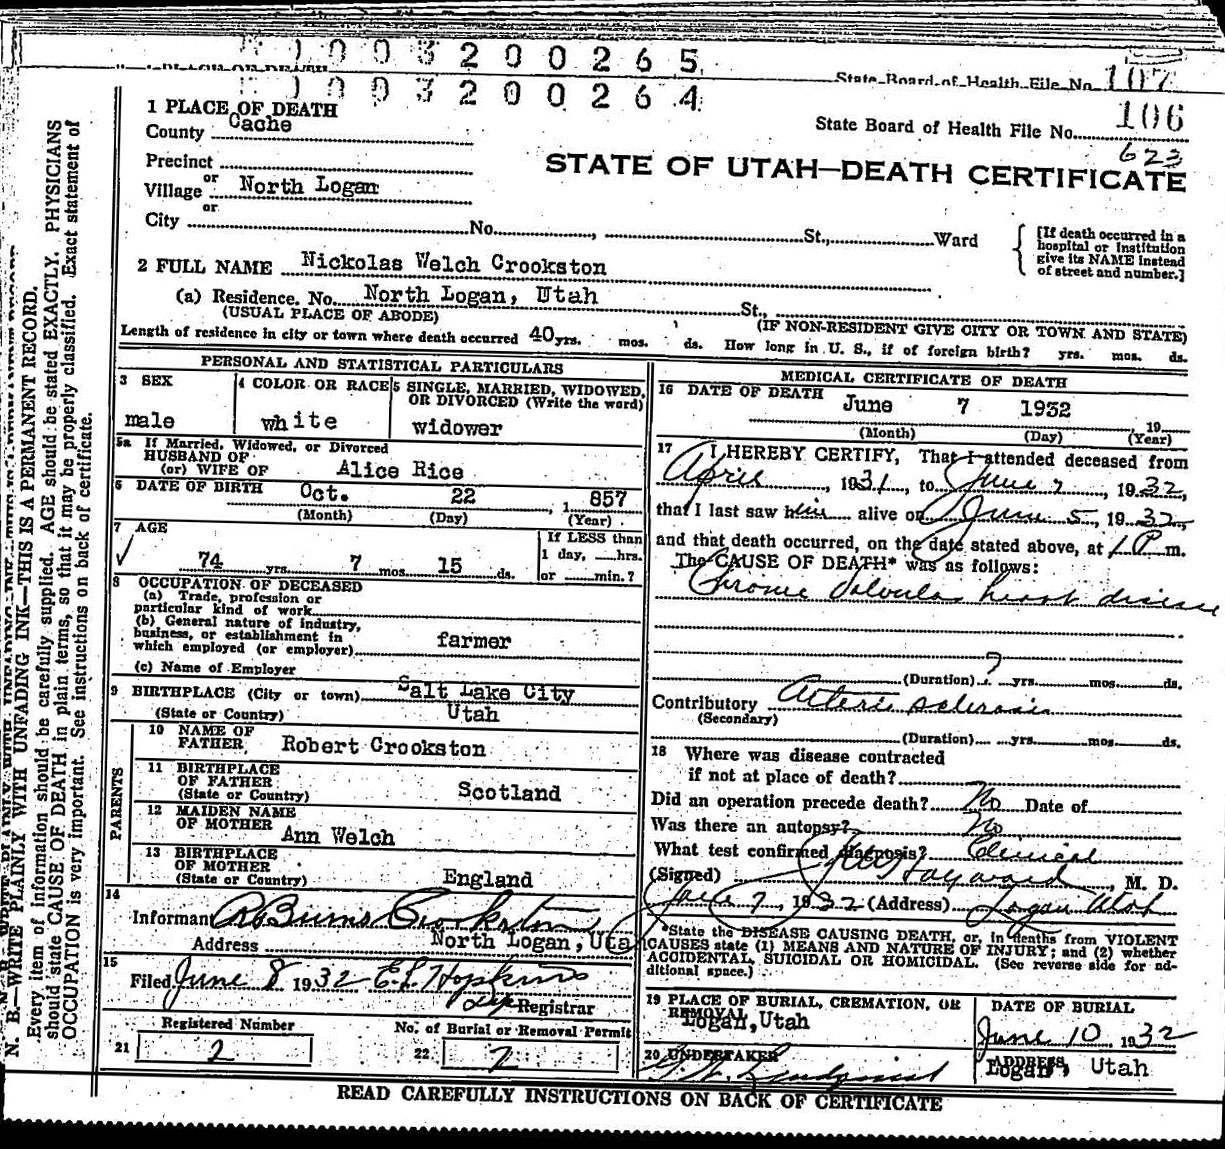 1003200265
State Board of Health File No. 107
1003200264
1 PLACE OF DEATH
State Board of Health File No. 106
County Cache
623
Precinct
STATE OF UTAH—DEATH CERTIFICATE
or
Village North Logan
or
City No. , St., Ward
[If death occurred in a
hospital or Institution
give its NAME instead
of street and number.]
2 FULL NAME Nickolas Welch Crookston
(a) Residence. No. North Logan, Utah St.,
(USUAL PLACE OF ABODE) (IF NON-RESIDENT GIVE CITY OR TOWN AND STATE)
Length of residence in city or town where death occurred 40 yrs. mos. ds. How long in U. S., if of foreign birth? yrs. mos. ds.
PERSONAL AND STATISTICAL PARTICULARS
3 SEX
male
4 COLOR OR RACE
white
5 SINGLE, MARRIED, WIDOWED,
OR DIVORCED (Write the word)
widower
5a If Married, Widowed, or Divorced
HUSBAND OF
(or) WIFE OF Alice Rice
6 DATE OF BIRTH Oct. 22 , 1 857
(Month) (Day) (Year)
7 AGE
74 yrs. 7 mos. 15 ds.
If LESS than
1 day, hrs.
or min.?
8 OCCUPATION OF DECEASED
(a) Trade, profession or
particular kind of work
(b) General nature of industry,
business, or establishment in
which employed (or employer) farmer
(c) Name of Employer
9 BIRTHPLACE (City or town) Salt Lake City
(State or Country) Utah
PARENTS
10 NAME OF
FATHER Robert Crookston
11 BIRTHPLACE
OF FATHER
(State or Country) Scotland
12 MAIDEN NAME
OF MOTHER Ann Welch
13 BIRTHPLACE
OF MOTHER
(State or Country) England
14
Informant R Burns Crookston
Address North Logan, Utah
15
Filed June 8 1932 E L Hopkins
Dep Registrar
Registered Number
21 2
No. of Burial or Removal Permit
22 2
MEDICAL CERTIFICATE OF DEATH
16 DATE OF DEATH June 7 1932 19
(Month) (Day) (Year)
17 I HEREBY CERTIFY, That I attended deceased from
April , 1931, to June 7, 1932,
that I last saw him alive on June 5, 1932,
and that death occurred, on the date stated above, at 1 P m.
The CAUSE OF DEATH* was as follows:
Chronic Valvular heart disease
(Duration) ? yrs. mos. ds.
Contributory Arterio sclerosis
(Secondary)
(Duration) yrs. mos. ds.
18 Where was disease contracted
if not at place of death?
Did an operation precede death? No Date of
Was there an autopsy? No
What test confirmed diagnosis? Clinical
(Signed) Hayward, M. D.
June 7, 1932 (Address) Logan Utah
*State the DISEASE CAUSING DEATH, or, in deaths from VIOLENT
CAUSES state (1) MEANS AND NATURE OF INJURY; and (2) whether
ACCIDENTAL, SUICIDAL OR HOMICIDAL. (See reverse side for ad-
ditional space.)
19 PLACE OF BURIAL, CREMATION, OR
REMOVAL
Logan, Utah
DATE OF BURIAL
June 10 1932
20 UNDERTAKER
Lindquist
ADDRESS
Logan, Utah
READ CAREFULLY INSTRUCTIONS ON BACK OF CERTIFICATE
N. B.—WRITE PLAINLY WITH UNFADING INK—THIS IS A PERMANENT RECORD.
Every item of information should be carefully supplied. AGE should be stated EXACTLY. PHYSICIANS
should state CAUSE OF DEATH in plain terms, so that it may be properly classified. Exact statement of
OCCUPATION is very important. See instructions on back of certificate.